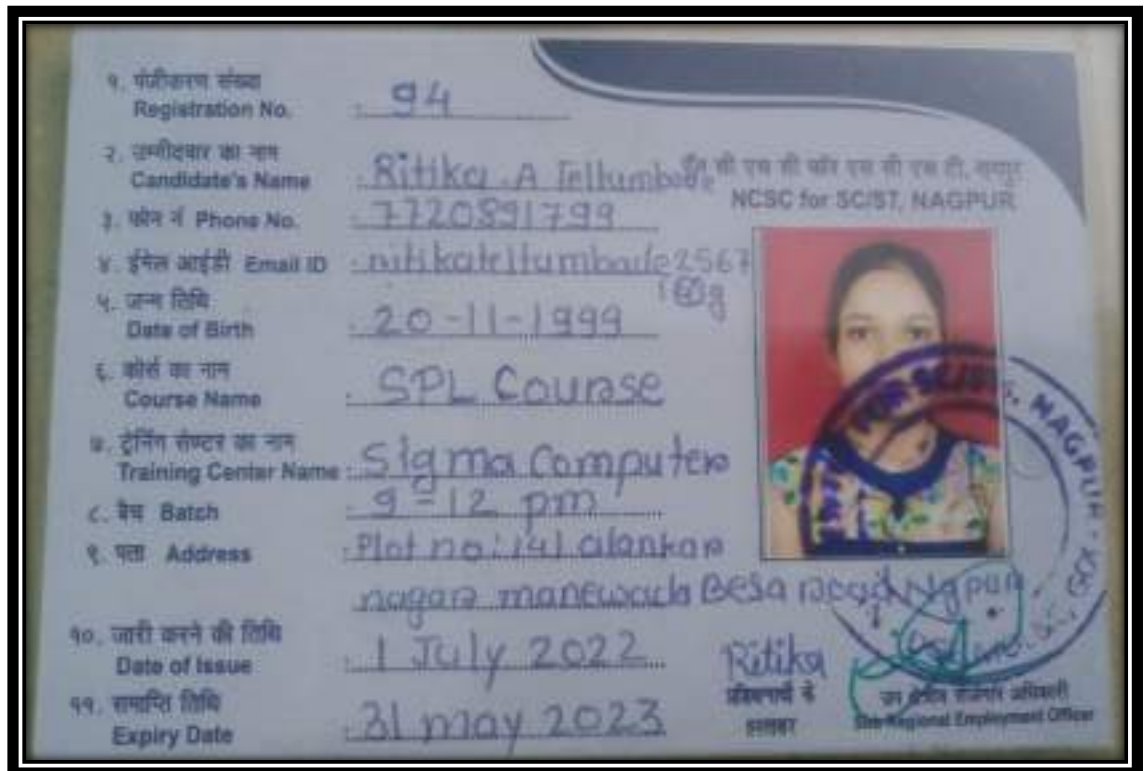 १. पंजीकरण संख्या
Registration No. : 94
२. उम्मीदवार का नाम
Candidate's Name : Ritika . A Tellumbade
सी एस सी फॉर एस सी एस टी, नागपुर
NCSC for SC/ST, NAGPUR
३. फोन नं Phone No. : 7720891799
४. ईमेल आईडी Email ID : 2567
५. जन्म तिथि
Date of Birth : 20-11-1999
६. कोर्स का नाम
Course Name : SPL Course
७. ट्रेनिंग सेण्टर का नाम
Training Center Name : Sigma Computer
८. बैच Batch : 9 = 12 pm
९. पता Address : Plot no: 141 alankar
nagar manewada Besa road Ngpur
१०. जारी करने की तिथि
Date of Issue : 1 July 2022
११. समाप्ति तिथि
Expiry Date : 31 may 2023
Ritika
हस्ताक्षर
उप क्षेत्रीय रोजगार अधिकारी
Sub-Regional Employment Officer
FOR SC/STs, NAGPUR